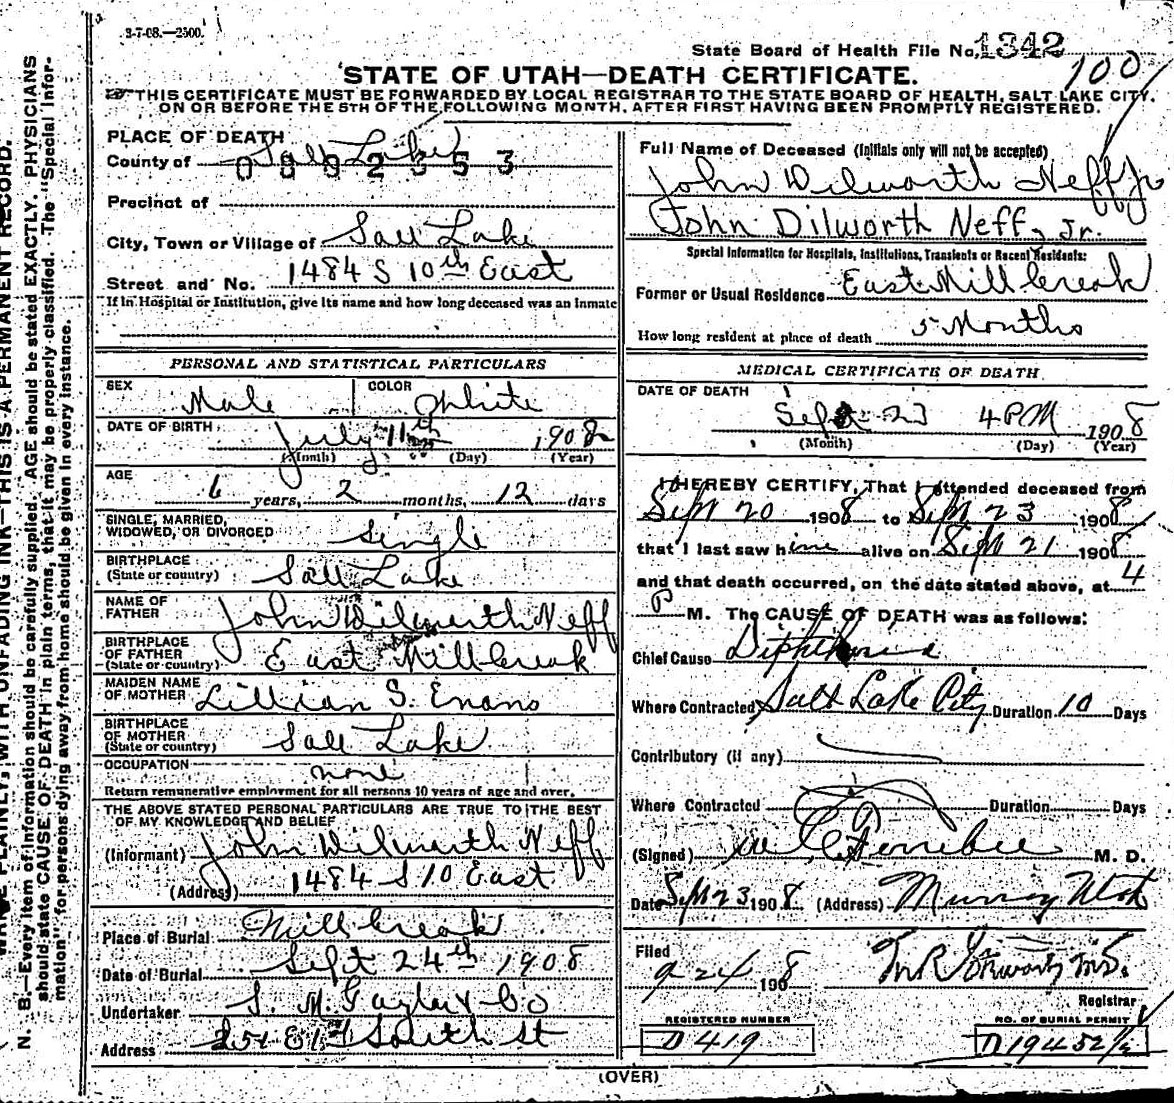 3-7-08.—2500.
State Board of Health File No. 1342
100
STATE OF UTAH—DEATH CERTIFICATE.
THIS CERTIFICATE MUST BE FORWARDED BY LOCAL REGISTRAR TO THE STATE BOARD OF HEALTH, SALT LAKE CITY,
ON OR BEFORE THE 5TH OF THE FOLLOWING MONTH, AFTER FIRST HAVING BEEN PROMPTLY REGISTERED.
PLACE OF DEATH
County of Salt Lake
Precinct of
City, Town or Village of Salt Lake
Street and No. 1484 S 10th East
If in Hospital or Institution, give its name and how long deceased was an inmate
PERSONAL AND STATISTICAL PARTICULARS
SEX Male COLOR White
DATE OF BIRTH July 11th 1902
(Month) (Day) (Year)
AGE
6 years, 2 months, 12 days
SINGLE, MARRIED,
WIDOWED, OR DIVORCED Single
BIRTHPLACE
(State or country) Salt Lake
NAME OF
FATHER John Dilworth Neff
BIRTHPLACE
OF FATHER
(State or country) East Mill Creek
MAIDEN NAME
OF MOTHER Lillian S. Evans
BIRTHPLACE
OF MOTHER
(State or country) Salt Lake
OCCUPATION none
Return remunerative employment for all persons 10 years of age and over.
THE ABOVE STATED PERSONAL PARTICULARS ARE TRUE TO THE BEST
OF MY KNOWLEDGE AND BELIEF
(Informant) John Dilworth Neff
(Address) 1484 S 10 East
Place of Burial Mill Creek
Date of Burial Sept 24th 1908
Undertaker S. M. Taylor & Co
Address E 1st South St
Full Name of Deceased (Initials only will not be accepted)
John Dilworth Neff Jr
John Dilworth Neff, Jr.
Special Information for Hospitals, Institutions, Transients or Recent Residents:
Former or Usual Residence East Mill Creek
How long resident at place of death 5 Months
MEDICAL CERTIFICATE OF DEATH
DATE OF DEATH
Sept 23 4PM 1908
(Month) (Day) (Year)
I HEREBY CERTIFY, That I attended deceased from
Sept 20 1908 to Sept 23 1908
that I last saw him alive on Sept 21 1908
and that death occurred, on the date stated above, at 4
P M. The CAUSE OF DEATH was as follows:
Chief Cause Diphtheria
Where Contracted Salt Lake City Duration 10 Days
Contributory (if any)
Where Contracted Duration Days
(Signed) M. D.
Date Sept 23 1908 (Address) Murray Utah
Filed
9 24 1908
Registrar
REGISTERED NUMBER
D 419
NO. OF BURIAL PERMIT
D 19452½
(OVER)
WRITE PLAINLY, WITH UNFADING INK—THIS IS A PERMANENT RECORD.
N. B.—Every item of information should be carefully supplied. AGE should be stated EXACTLY. PHYSICIANS
should state CAUSE OF DEATH in plain terms, that it may be properly classified. The "Special Infor-
mation" for persons dying away from home should be given in every instance.